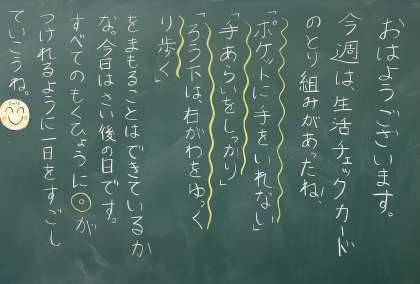 おはようございます。
今週は、生活チェックカード
のとり組みがあったね。
「ポケットに手をいれない」
「手あらいをしっかり」
「ろう下は、右がわをゆっく
り歩く」
をまもることはできているか
な。今日はさい後の日です。
すべてのもくひょうに◎が
つけれるように一日をすごし
ていこうね。